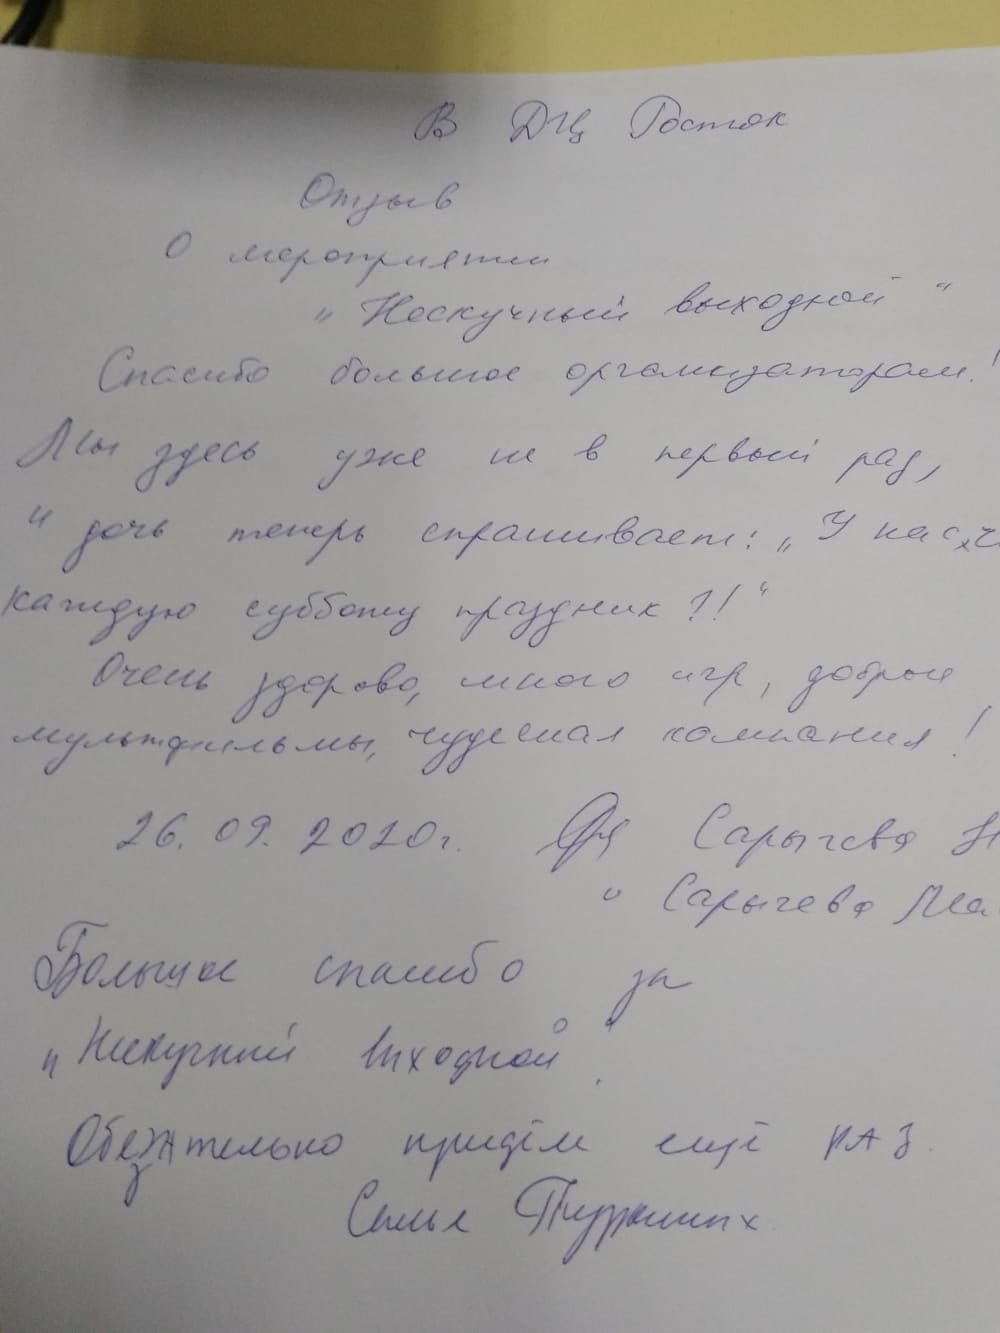 В ДЦ Росток
Отзыв
О мероприятии
„Нескучный выходной“
Спасибо большое организаторам!
Мы здесь уже не в первый раз,
и дочь теперь спрашивает: „У нас
каждую субботу праздник?!“
Очень здорово, много игр, добрые
мультфильмы, чудесная компания!
26.09.2020г. Сарычева Н
и Сарычева Ма
Большое спасибо за
„Нискучный выходной“.
Обезательно придём ещё РАЗ.
Семья